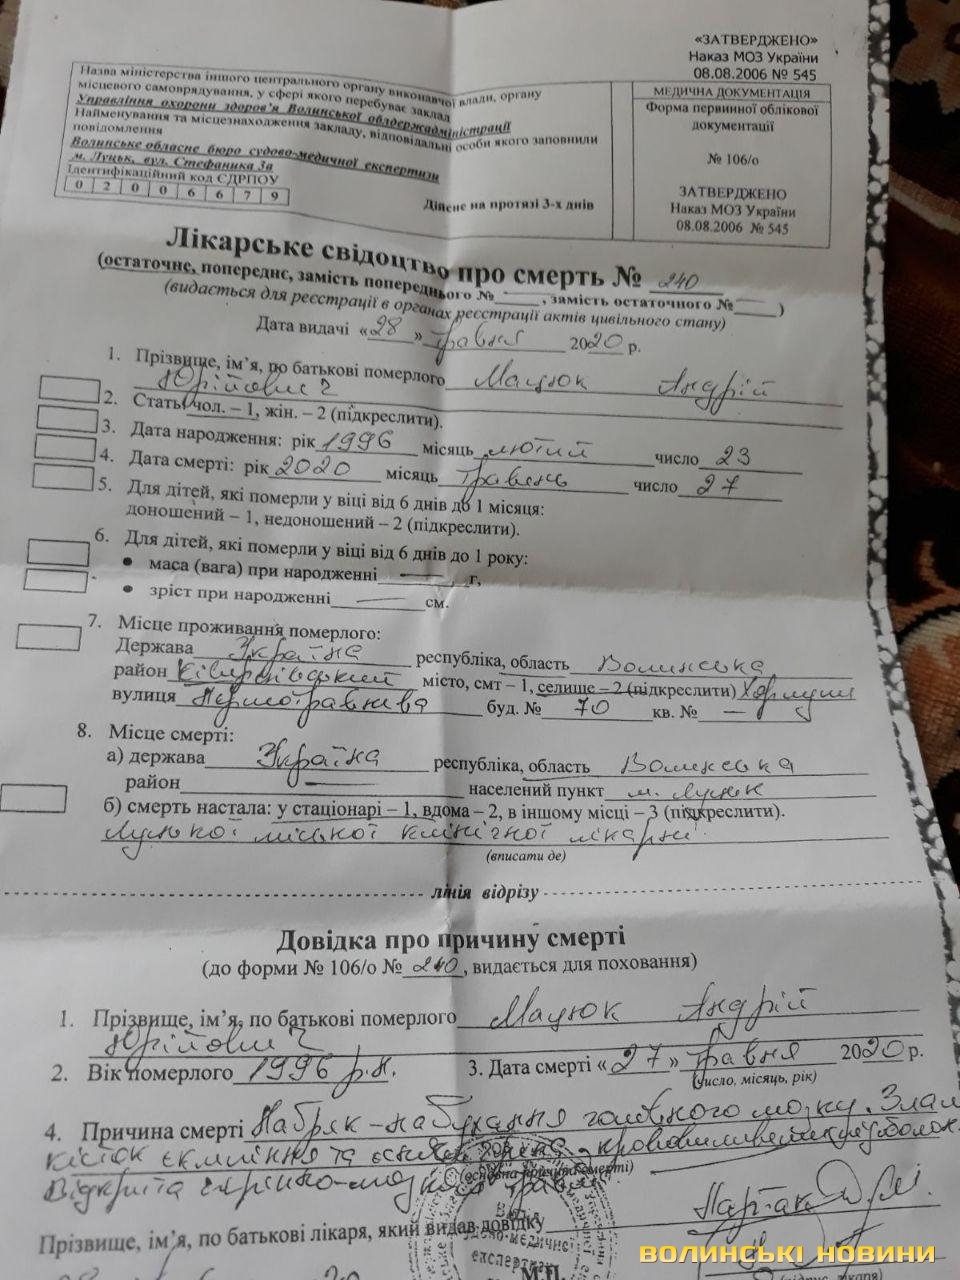 «ЗАТВЕРДЖЕНО»
Наказ МОЗ України
08.08.2006 № 545
Назва міністерства іншого центрального органу виконавчої влади, органу
місцевого самоврядування, у сфері якого перебуває заклад
Управління охорони здоров'я Волинської облдержадміністрації
Найменування та місцезнаходження закладу, відповідальні особи якого заповнили
повідомлення
Волинське обласне бюро судово-медичної експертизи
м. Луцьк, вул. Стефаника 3а
Ідентифікаційний код ЄДРПОУ
0 2 0 0 6 6 7 9
Дійсне на протязі 3-х днів
МЕДИЧНА ДОКУМЕНТАЦІЯ
Форма первинної облікової
документації
№ 106/о
ЗАТВЕРДЖЕНО
Наказ МОЗ України
08.08.2006 № 545
Лікарське свідоцтво про смерть № 240
(остаточне, попереднє, замість попереднього № — , замість остаточного № — )
(видається для реєстрації в органах реєстрації актів цивільного стану)
Дата видачі «28» травня 2020 р.
1. Прізвище, ім'я, по батькові померлого Мацюк Андрій
Юрійович
2. Стать: чол. – 1, жін. – 2 (підкреслити).
3. Дата народження: рік 1996 місяць лютий число 23
4. Дата смерті: рік 2020 місяць травень число 27
5. Для дітей, які померли у віці від 6 днів до 1 місяця:
доношений – 1, недоношений – 2 (підкреслити).
6. Для дітей, які померли у віці від 6 днів до 1 року:
• маса (вага) при народженні — г,
• зріст при народженні — см.
7. Місце проживання померлого:
Держава Україна республіка, область Волинська
район Ківерцівський місто, смт – 1, селище – 2 (підкреслити)
вулиця Першотравнева буд. № 70 кв. № —
8. Місце смерті:
а) держава Україна республіка, область Волинська
район — населений пункт м. Луцьк
б) смерть настала: у стаціонарі – 1, вдома – 2, в іншому місці – 3 (підкреслити).
Луцької міської клінічної лікарні
(вписати де)
лінія відрізу
Довідка про причину смерті
(до форми № 106/о № 240, видається для поховання)
1. Прізвище, ім'я, по батькові померлого Мацюк Андрій
Юрійович
2. Вік померлого 1996 р.н. 3. Дата смерті «27» травня 2020 р.
(число, місяць, рік)
4. Причина смерті Набряк-набухання головного мозку. Злам
кісток склепіння та основи черепа
(основна причина смерті)
Відкрита черепно-мозкова травма
Прізвище, ім'я, по батькові лікаря, який видав довідку
М.П.
ВОЛИНСЬКІ НОВИНИ